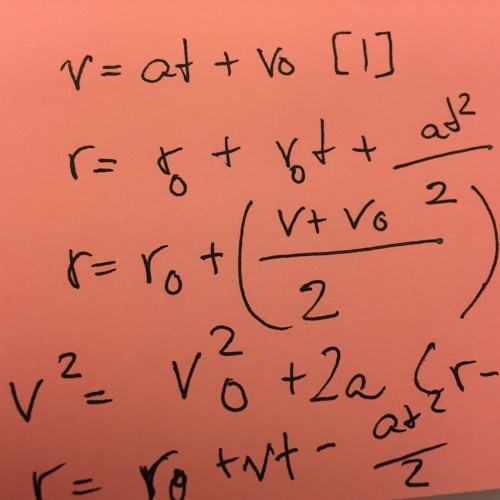 v = at + v₀ [1]
r = r₀ + v₀t + at²/2
r = r₀ + ((v + v₀)/2)
v² = v₀² + 2a (r -
r = r₀ + vt - at²/2